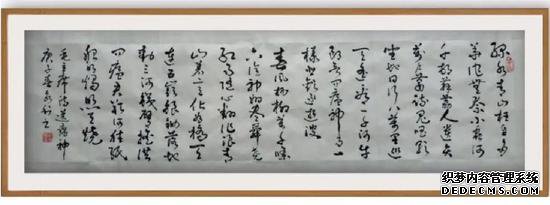 绿水青山枉自多
華佗無奈小蟲何
千村薜荔人遺矢
萬户蕭疏鬼唱歌
坐地日行八萬里巡
天遥看一千河牛
郎欲问瘟神事一
樣悲歡逐逝波
春风杨柳萬千條
六億神州尽舜尧
红雨隨心翻作浪青
山着意化为橋天
連五嶺銀鋤落地
動三河鐵臂摇借
问瘟君欲何往紙
船明燭照天燒
毛主席诗送瘟神
庚子春
织梦内容管理系统
DEDECMS.COM